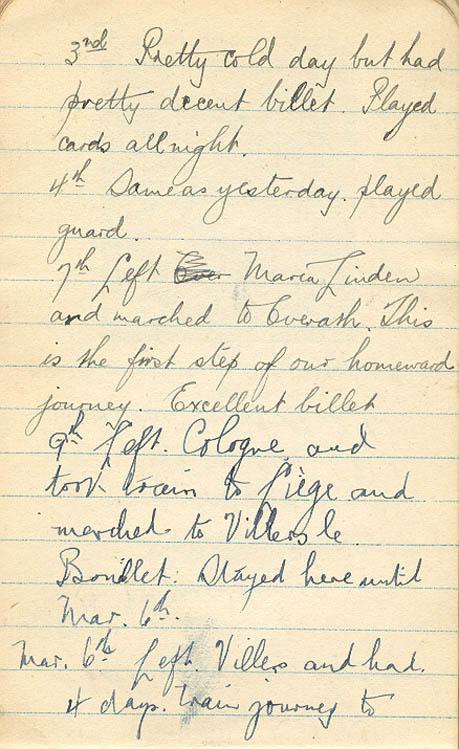 3rd Pretty cold day but had
pretty decent billet. Played
cards all night.
4th Same as yesterday. played
guard.
7th Left Maria Linden
and marched to Everath. This
is the first step of our homeward
journey. Excellent billet
9th Left. Cologne and
took train to Liège and
marched to Villers le
Bouillet. Stayed here until
Mar. 6th.
Mar. 6th Left. Villers and had.
4 days. train journey to